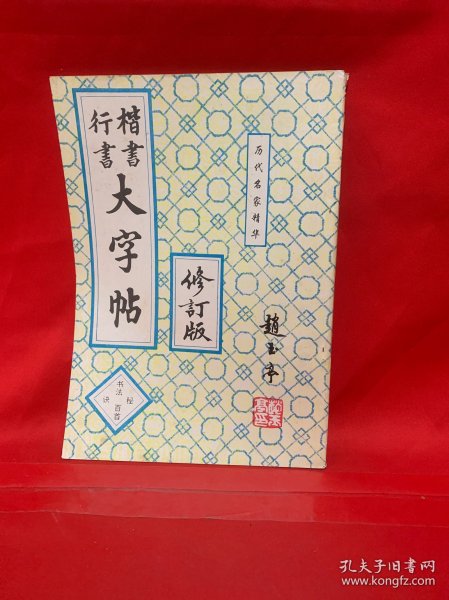 楷書
行書
大字帖
修訂版
历代名家精华
趙玉亭
书法秘诀百首
孔夫子旧书网
www.kongfz.com